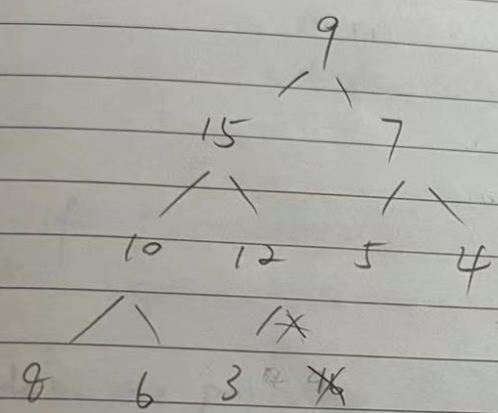 9
15 7
10 12 5 4
8 6 3